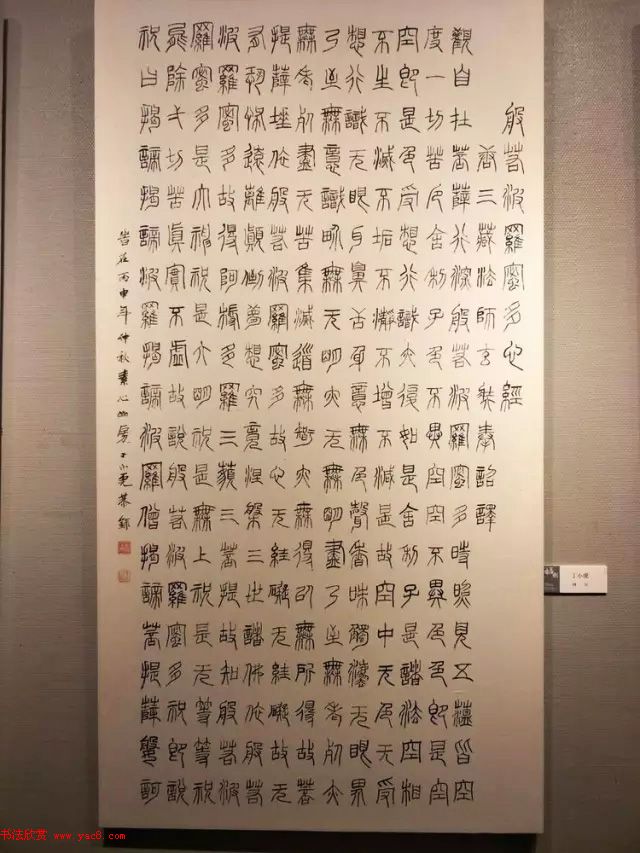 般若波羅蜜多心經
唐三藏法師玄奘奉詔譯
觀自在菩薩行深般若波羅蜜多時照見五蘊皆空
度一切苦厄舍利子色不異空空不異色色即是空
空即是色受想行識亦復如是舍利子是諸法空相
不生不滅不垢不淨不增不減是故空中无色无受
想行識无眼耳鼻舌身意無色聲香味觸法无眼界
乃至無意識界無无明亦无無明盡乃至無老死亦
無老死盡无苦集滅道無智亦無得以無所得故菩
提薩埵依般若波羅蜜多故心无罣礙无罣礙故无
有恐怖遠離顛倒夢想究竟涅槃三世諸佛依般若
波羅蜜多故得阿耨多羅三藐三菩提故知般若波
羅蜜多是大神祝是大明祝是無上祝是无等等祝
能除一切苦真實不虛故說般若波羅蜜多祝即說
祝曰揭諦揭諦波羅揭諦波羅僧揭諦菩提薩婆訶
時在丙申年仲秋素心幽居丁小虎恭錄
丁小虎
书法欣赏 www.yac8.com